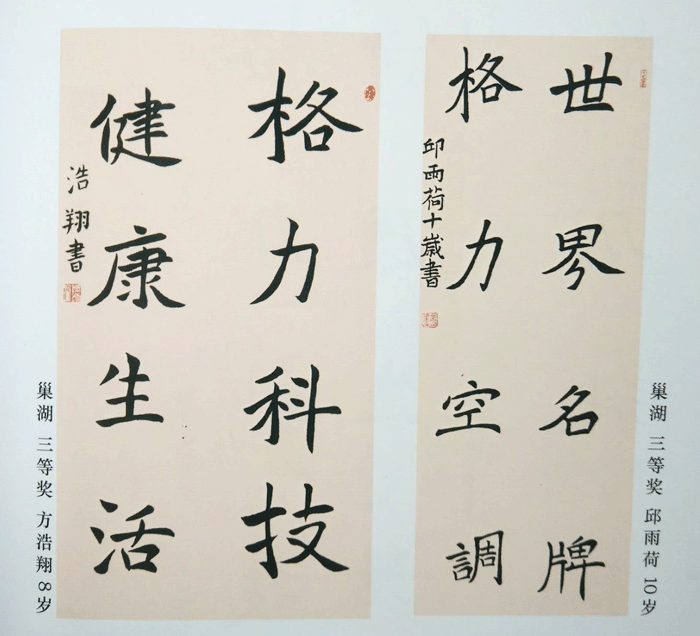 世界名牌
格力空調
邱雨荷十歲書
巢湖 三等奖 邱雨荷 10岁
格力科技
健康生活
浩翔書
巢湖 三等奖 方浩翔 8岁